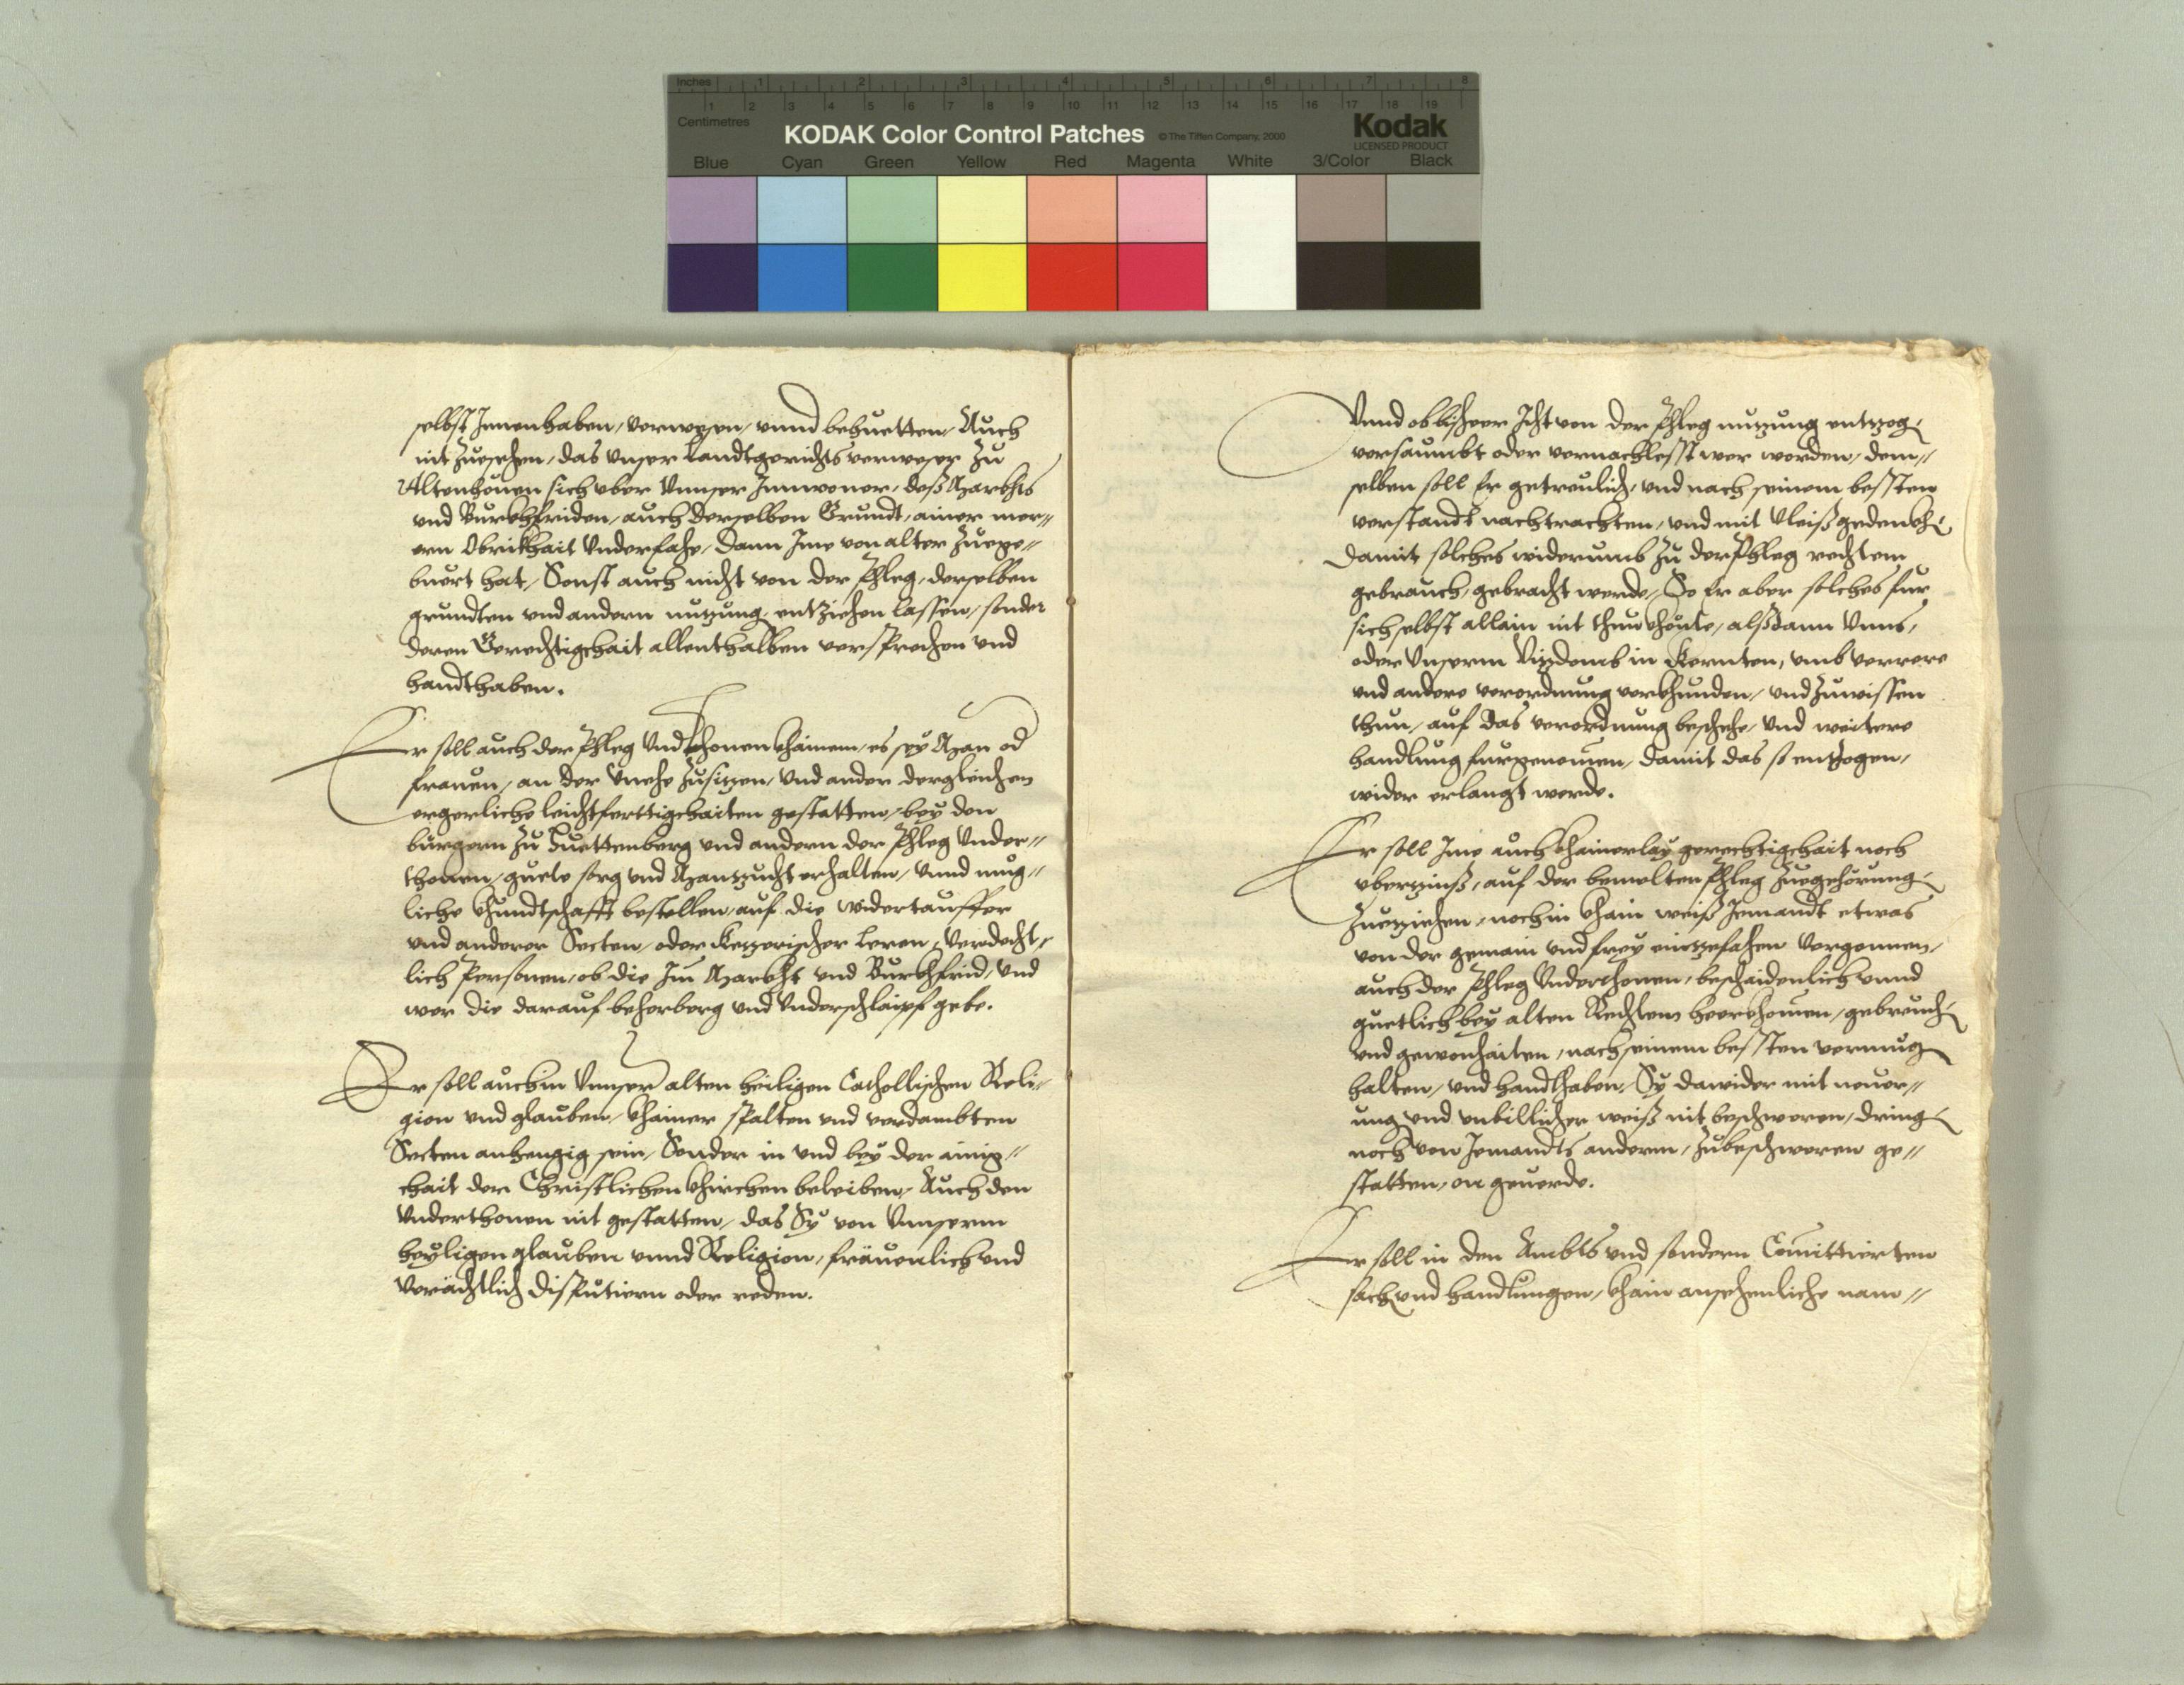 Inches 1 2 3 4 5 6 7 8
1 2 3 4 5 6 7 8 9 10 11 12 13 14 15 16 17 18 19
Centimetres
KODAK Color Control Patches © The Tiffen Company, 2000 Kodak
LICENSED PRODUCT
Blue Cyan Green Yellow Red Magenta White 3/Color Black
selbst Innenhaben, verwesen, unnd behuetten, Auch
nit Zuesehen, das Unser Landtgerichts verweser Zu
Altenhouen sich uber Unnser Innwoner, deß Markhts
und Burkhfriden, auch derselben Grundt, ainer mer//
ern Obrikhait Underfahe, dann Ime von alter Zuege//
buert hat, Sonst auch nicht von der Phleg, derselben
grundten und andern nutzung entziehen lassen, sonder
deren Gerechtigkhait allenthalben versprechen und
handthaben.
Er soll auch der Phleg Underthonen khainem, es sey Man od
frauen, an der Unehe Zusitzen, Und ander dergleichen
ergerliche leichtferttigkhaiten gestatten, bey den
burgern Zu Huettenberg und andern der Phleg Under//
thonen, guete sorg und Manszucht erhalten, Unnd mug//
liche khundtschafft bestellen, auf die widertauffer
und anderer Secten, oder ketzerischer leren, Verdecht//
lich Personen, ob die Im Markht und Burkhfrid, und
wer die darauf beherberg und Underschlaipf gebe.
Er soll auch in Unnser alten heiligen Catholischen Reli//
gion und glauben, khainer spalten und verdambten
Secten anhengig sein, Sonder in und bey der ainig//
khait der Christlichen khirchen beleiben, Auch den
Underthonen nit gestatten, das Sy von Unnserm
heyligen glauben unnd Religion, fräuenlich und
Verächtlich disputiern oder reden.
Unnd ob bisheer Icht von der Phleg nutzung entzog
versaumbt oder vernachlesst wer worden, dem//
selben soll Er getreulich, und nach seinem bessten
verstandt nachtrachten, und mit Vleiß gedenkh
damit solches widerumb Zu der Phleg rechtem
gebrauch, gebracht werde, So Er aber solches fur
sich selbst allain nit thun khönte, alßdann Unns,
oder Unserm Vitzdomb in Kernten, umb verrere
und andere verordnung verkhunden, und Zuwissen
thun, auf das verordnung beschehe, Und weitere
handlung furgenomen, damit das so entzogen,
wider erlangt werde.
Er soll Ime auch khainerlay gerechtigkhait noch
uberzinß, auf der bemelten Phleg Zuegehörung
Zueziehen, noch in khain weiß Iemandt etwas
von der gemain und frey eintzefahen Vergonnen,
auch der Phleg Underthonen, beschaidenlich unnd
guetlich bey alten Rechtem heerkhomen, gebreuch
und gewonhaiten, nach seinem bessten vermug
halten, und handthaben, Sy dawider mit neuer//
ung und unbillicher weiß nit beschweren, dring
noch von Iemandts anderm, Zubeschweren ge//
statten, on geuerde.
Er soll in den Ambts und sondern Comittierten
sach und handlungen, khain ansehenliche nam//